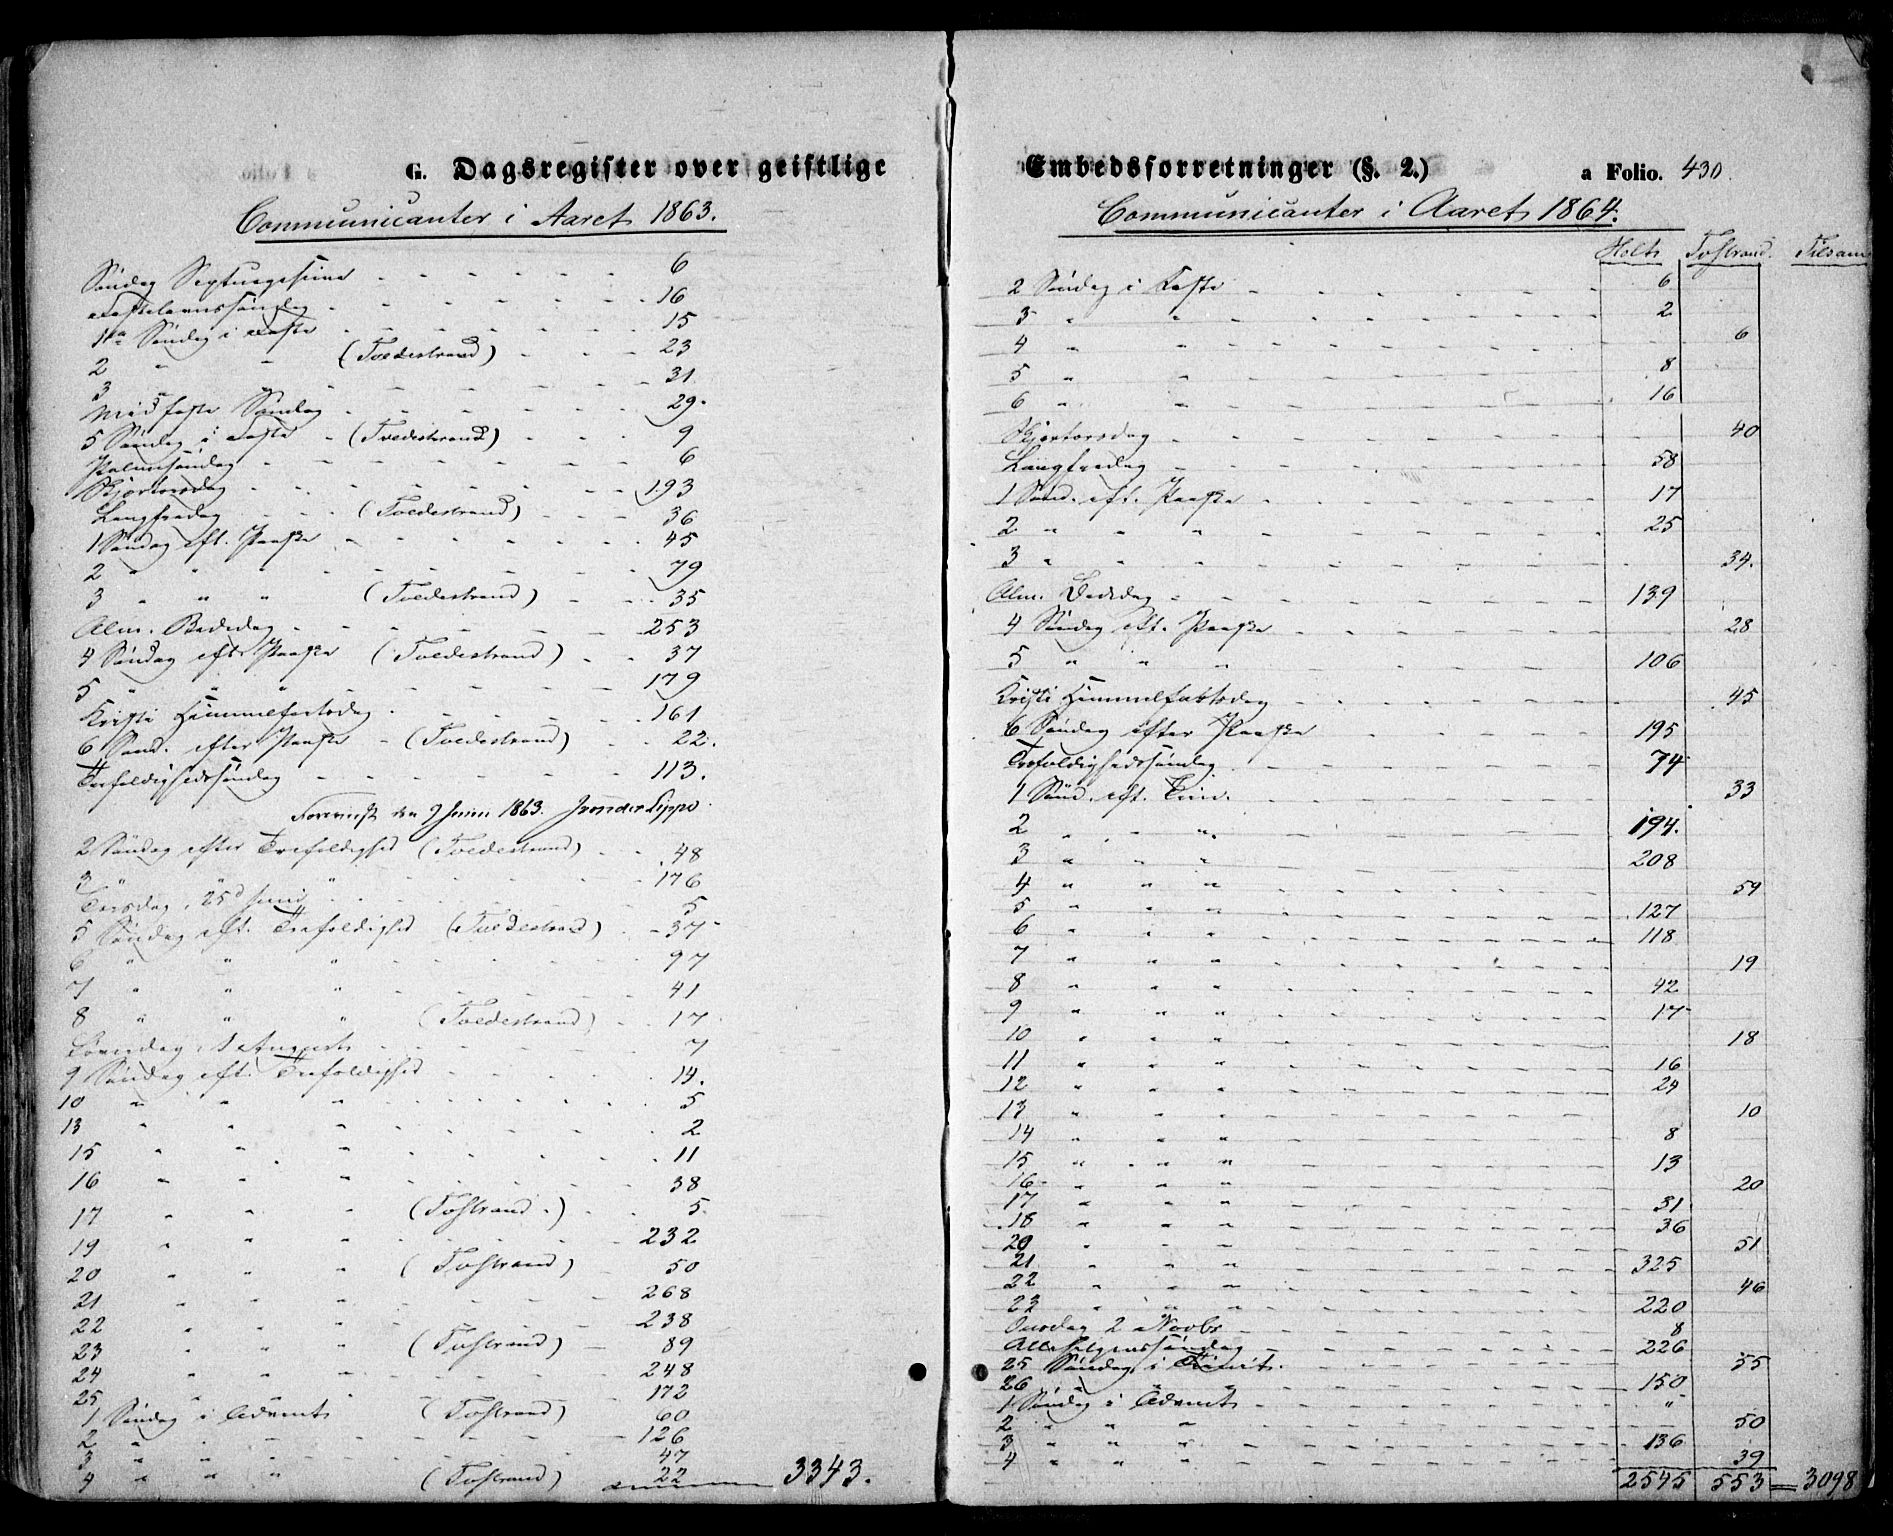 G. Dagsregister over geistlige
Communicanter i Aaret 1863.
Søndag Septuagesima - - - - - 6
Fastelavnssøndag - - - - - 16
1ste Søndag i Faste - - - - - 15
2 " - (Tvedestrand) - - 23
3 " - - - - - 31
Midfaste Søndag - - - - - 29.
5 Søndag i Faste - (Tvedestrand) - - - 9
Palmesøndag - - - - - 6
Skjærtorsdag - - - - - 193
Langfredag - - - (Tvedestrand) - - - 36
1 Søndag eft. Paaske - - - - - 45
2 " " " - - - - - 79
3 " " " (Tvedestrand) - - 35
Alm. Bededag - - - - - 253
4 Søndag efter Paaske (Tvedestrand) - - 37
5 " " " - - - - - 179
Kristi Himmelfartsdag - - - - - 161
6 Sønd. efter Paaske - (Tvedestrand) - - 22.
Trefoldighedssøndag - - - - - 113.
Forevist den 9 Juni 1863.
2 Søndag efter Trefoldighed (Tvedestrand) - - 48
3 " " " - - - - - 176
Torsdag, 25d Juni - - - - - 5
5 Søndag eft. Trefoldighed (Tvedestrand) - - 37
6 " " " - - - - - 97
7 " " " - - - - - 41
8 " " " (Tvedestrand) - - 17
Løverdag, 1 August - - - - - 7
9 Søndag eft. Trefoldighed - - - - - 14.
10 " " " - - - - - 5
13 " " " - - - - - 2
15 " " " - - - - - 11
16 " " " - - - - - 38
17 " " " (Tvstrand.) - - 5
19 " " " - - - - - 232
20 " " " (Tvstrand) - - 50
21 " " " - - - - - 268
22 " " " - - - - - 238
23 " " " (Tvstrand) - 89
24 " " " - - - - - 248
25 " " " - - - - - 172
1 Søndag i Advent (Tvstrand) - 60
2 " " " - - - - - 126
3 " " " - - - - - 47
4 " " " (Tvstrand) 22 3343.
Embedsforretninger (§. 2.) a Folio. 430.
Communicanter i Aaret 1864.
Holt Tvstrand. Tilsam
2 Søndag i Faste - - - - - 6
3 " " - - - - - 2
4 " " - - - - - 6
5 " " - - - - - 8
6 " " - - - - - 16
Skjærtorsdag - - - - - 40
Langfredag - - - - - 58
1 Sønd. eft. Paaske - - - - - 17
2 " " " - - - - - 25
3 " " " - - - - - 34.
Alm. Bededag - - - - - 139
4 Søndag eft. Paaske - - - - - 28
5 " " " - - - - - 106
Kristi Himmelfartsdag - - - - - 45
6 Søndag efter Paaske - - - - - 195
Trefoldighedssøndag - - - - - 74
1 Sønd. eft. Trin. - - - - - 33
2 " " " - - - - - 194.
3 " " " - - - - - 208
4 " " " - - - - - 59
5 " " " - - - - - 127
6 " " " - - - - - 118
7 " " " - - - - - 19
8 " " " - - - - - 42
9 " " " - - - - - 17
10 " " " - - - - - 18
11 " " " - - - - - 16
12 " " " - - - - - 24
13 " " " - - - - - 10
14 " " " - - - - - 8
15 " " " - - - - - 13
16 " " " - - - - - 20
17 " " " - - - - - 31
18 " " " - - - - - 36
20 " " " - - - - - 51
21 " " " - - - - - 325
22 " " " - - - - - 46
23 " " " - - - - - 220
Onsdag 2 Novbr - - - - - 8
Allehelgenssøndag - - - - - 226
25 Søndag - - - - - 55
26 " " " - - - - - 150
1 Søndag i Advent - - - - - "
2 " " " - - - - - 50
3 " " " - - - - - 136
4 " " " - - - - - 39
2545 553 = 3098